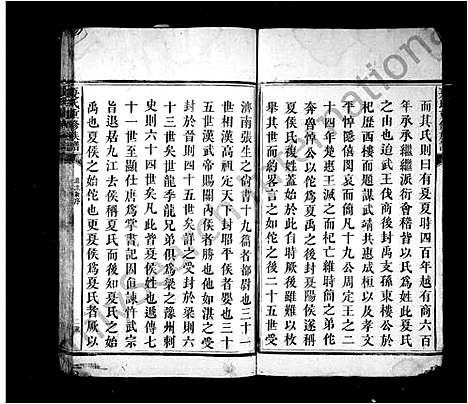 而其氏則曰有夏夏時四百年越有商六百
年承承繼繼派衍會稽皆以氏爲姓此夏氏
之始也迨武王伐商後封禹支孫東樓公於
杞歷西樓而題謀武靖共惠成桓以及孝文
平悼隱僖閔哀而簡凡十九公周定王之二
十四年楚惠王滅之而杞亡維時簡之弟佗
奔魯悼公以佗爲夏禹之後封夏陽侯遂稱
夏侯氏複姓蓋始於此自時厥後雖難以枚
舉世其而約畧言之如佗之後二十五世受
濟南張生之尚書十九篇者都尉也三十一
世相漢高祖定天下封耶平侯者嬰也三十
五世漢武帝賜關内侯者勝也他如湛之受
封於晉則四十五世矣詳之受封於梁則六
十三世矣世龍季龍兄弟俱爲梁之豫州刺
史則六十四世矣凡此皆夏侯姓也遞傳七
十一世至顯仕唐爲掌書記因直諫忤武宗
旨退居九江去侯稱夏氏而後知夏氏之始
禹也夏侯之始佗也更夏侯爲夏氏者厥以